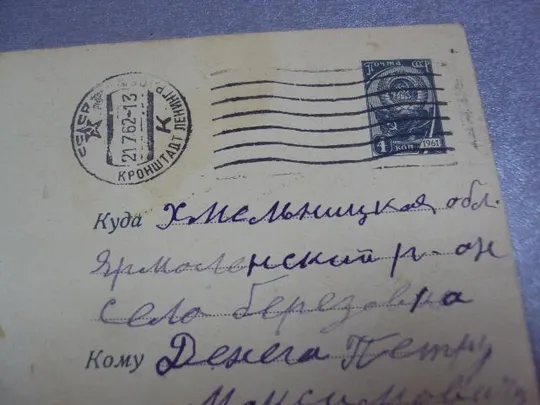 Почта СССР
СССР
21.7.62-13
КРОНШТАДТ ЛЕНИНГР.
К
4 коп 1961
Куда Хмельницкая, обл.
Ярмолинский р-он
село Березовка
Кому Денега Петру
Максимович